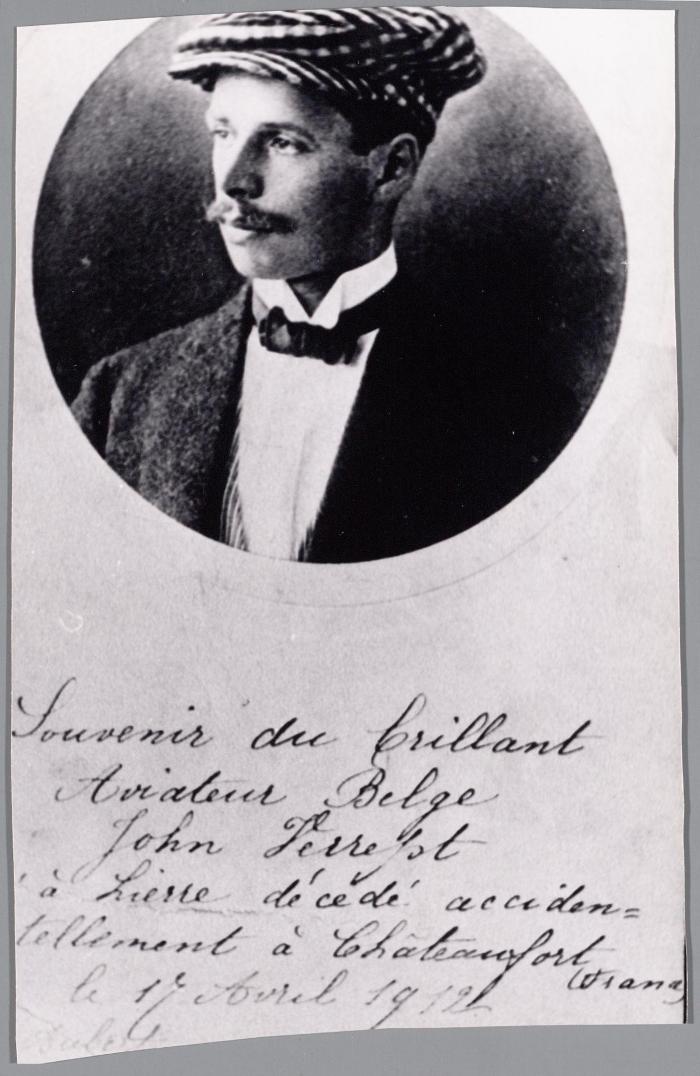 Souvenir du brillant
Aviateur Belge
John Verrept
à Lierre décédé acciden=
tellement à Châteaufort
le 17 Avril 1912